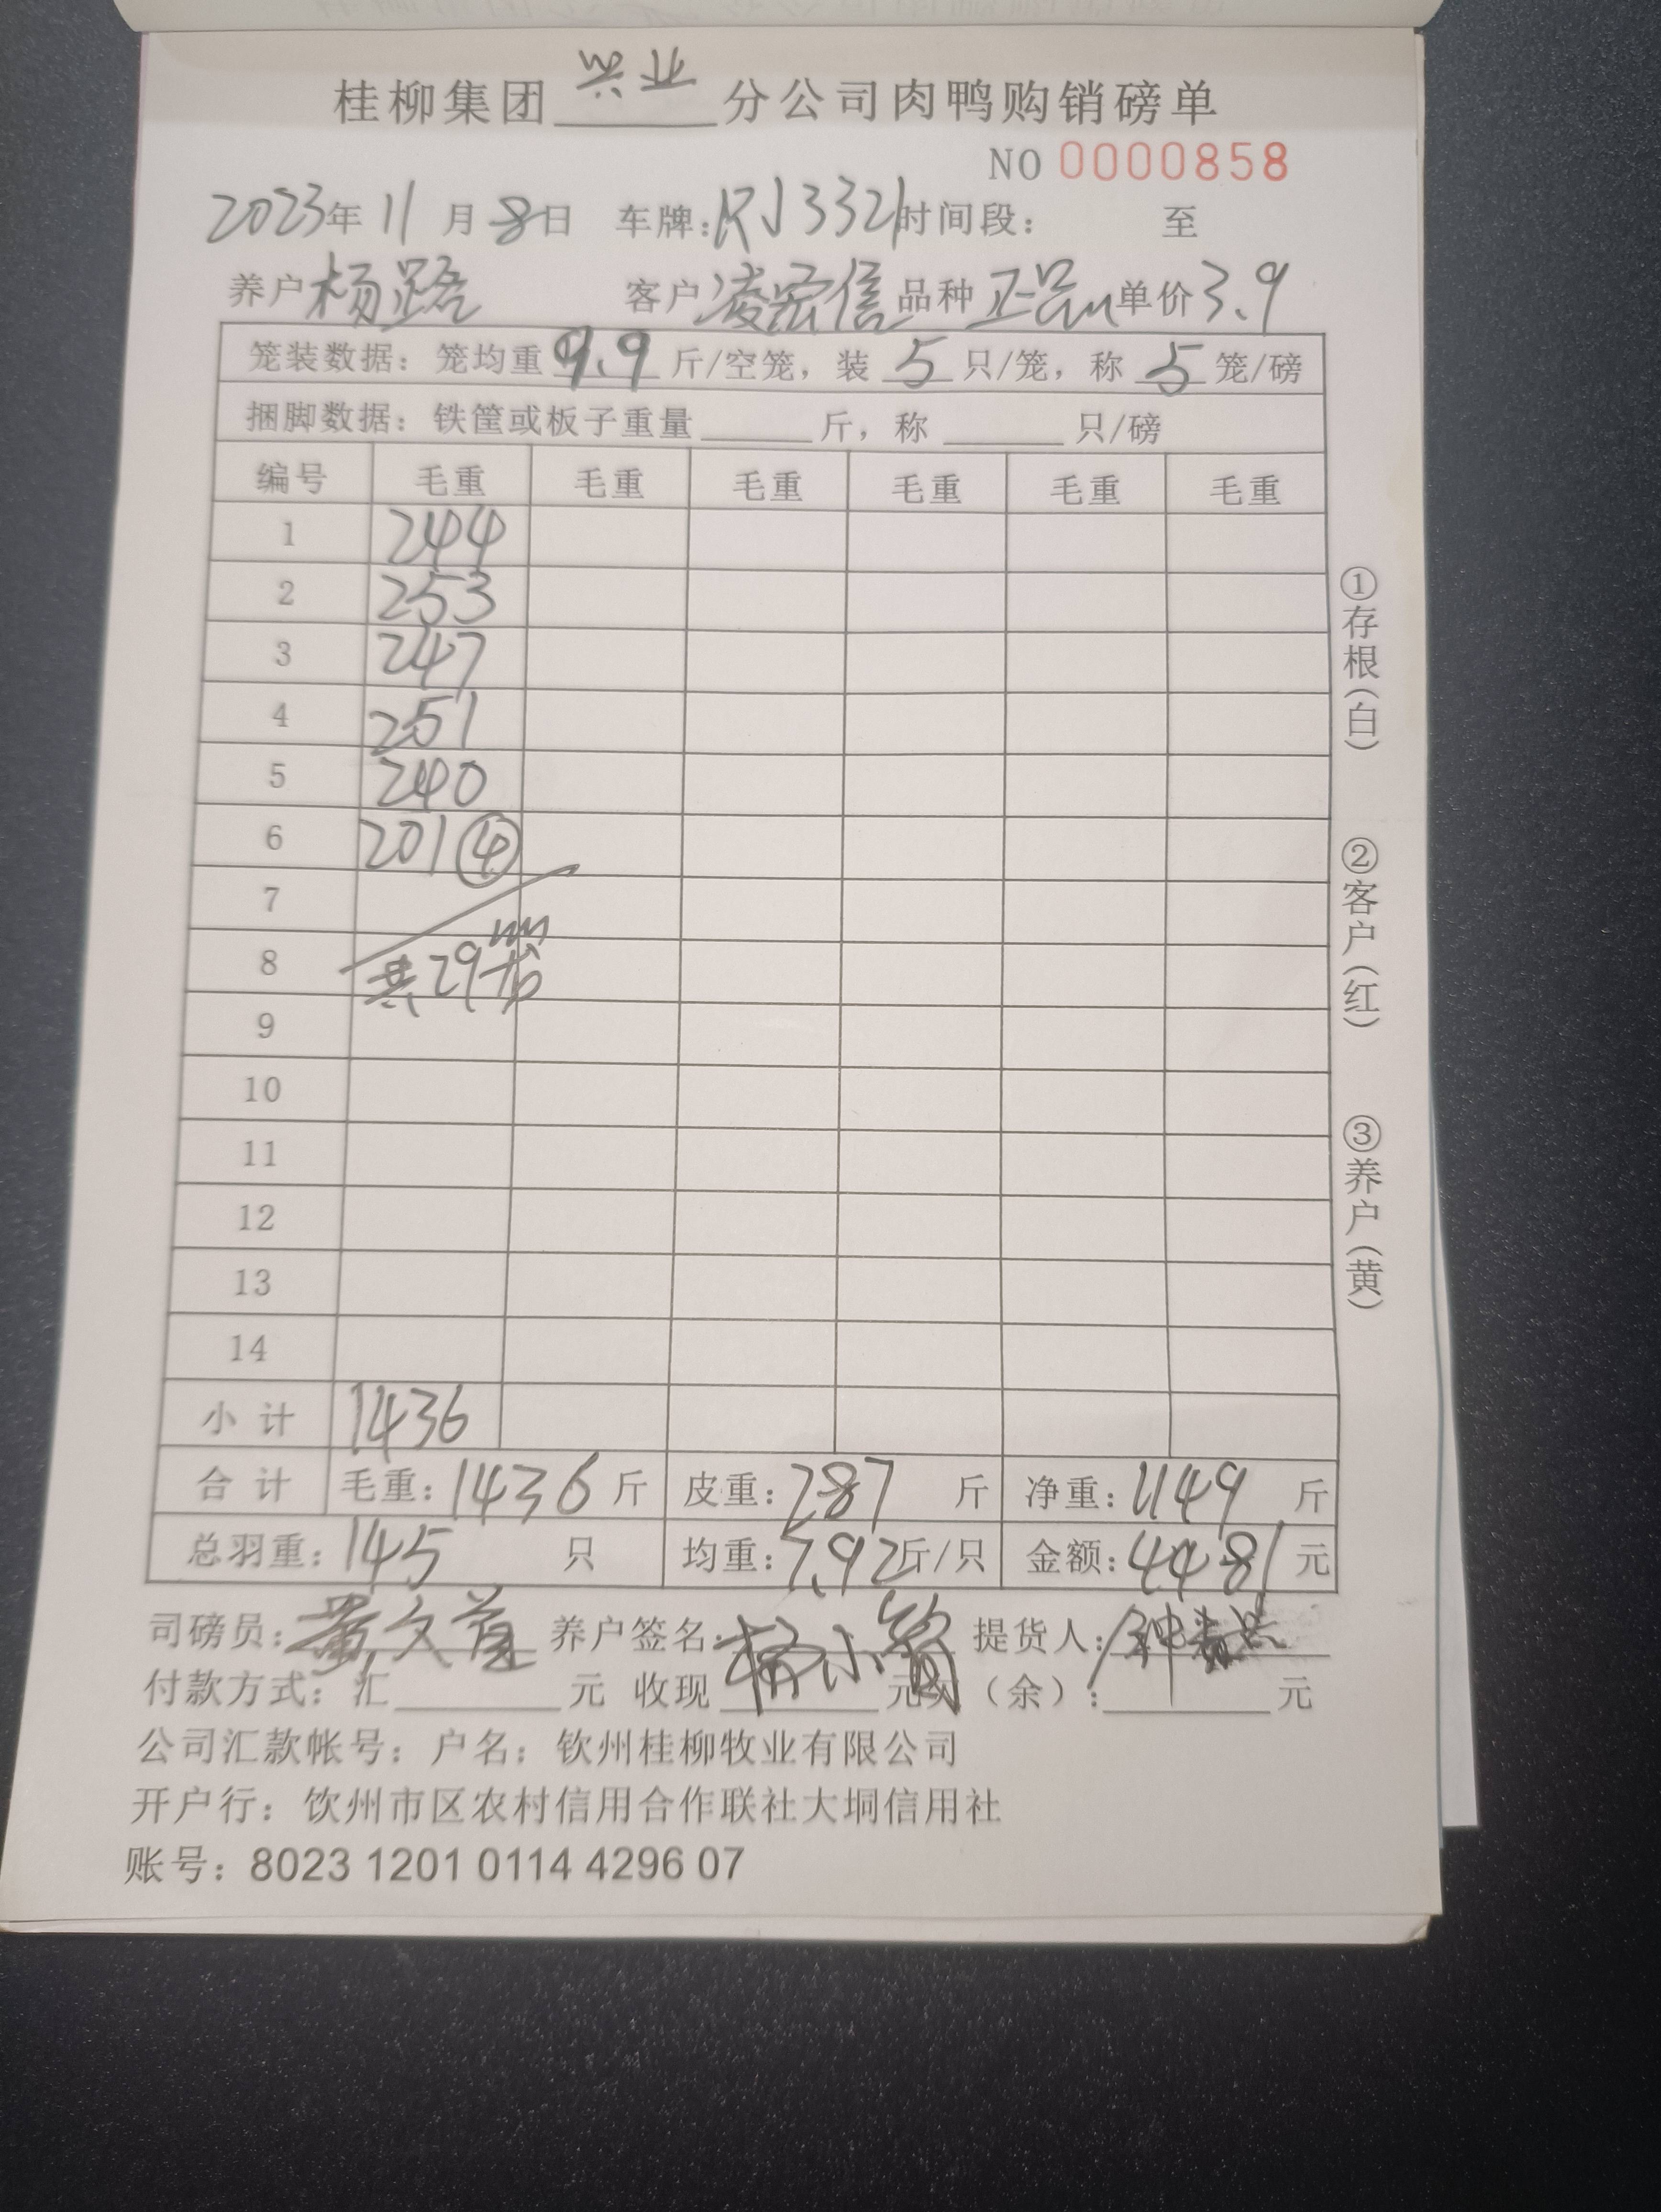 桂柳集团 兴业 分公司肉鸭购销磅单
NO 0000858
2023年 11 月 8日 车牌: 3321 时间段: 至
养户 杨 客户 凌宏信 品种 正品 单价 3.9
笼装数据: 笼均重 9.9 斤/空笼, 装 5 只/笼, 称 5 笼/磅
捆脚数据: 铁筐或板子重量 斤, 称 只/磅
编号 毛重 毛重 毛重 毛重 毛重 毛重
1 244
2 253
3 247
4 251
5 240
6 201 ④
7
8 共29笼
9
10
11
12
13
14
小计 1436
合计 毛重: 1436 斤 皮重: 287 斤 净重: 1149 斤
总羽重: 145 只 均重: 7.92 斤/只 金额: 4481 元
司磅员: 黄文 养户签名: 杨小 提货人: 钟
付款方式: 汇 元 收现 元 (余): 元
公司汇款帐号: 户名: 钦州桂柳牧业有限公司
开户行: 饮州市区农村信用合作联社大垌信用社
账号: 8023 1201 0114 4296 07
①存根(白)
②客户(红)
③养户(黄)